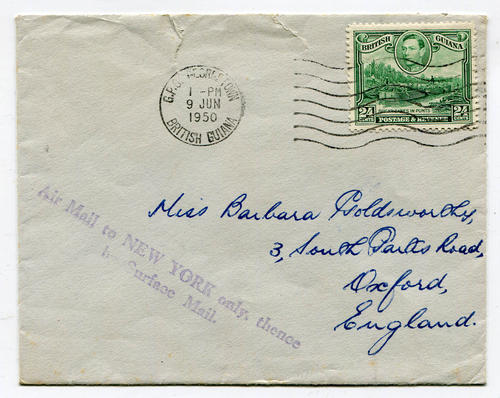 G.P.O. GEORGETOWN
1 - PM
9 JUN
1950
BRITISH GUIANA
BRITISH GUIANA
24 CENTS
24 CENTS
POSTAGE & REVENUE
Miss Barbara Goldsworthy,
3, South Parks Road,
Oxford,
England.
Air Mail to NEW YORK only, thence
by Surface Mail.